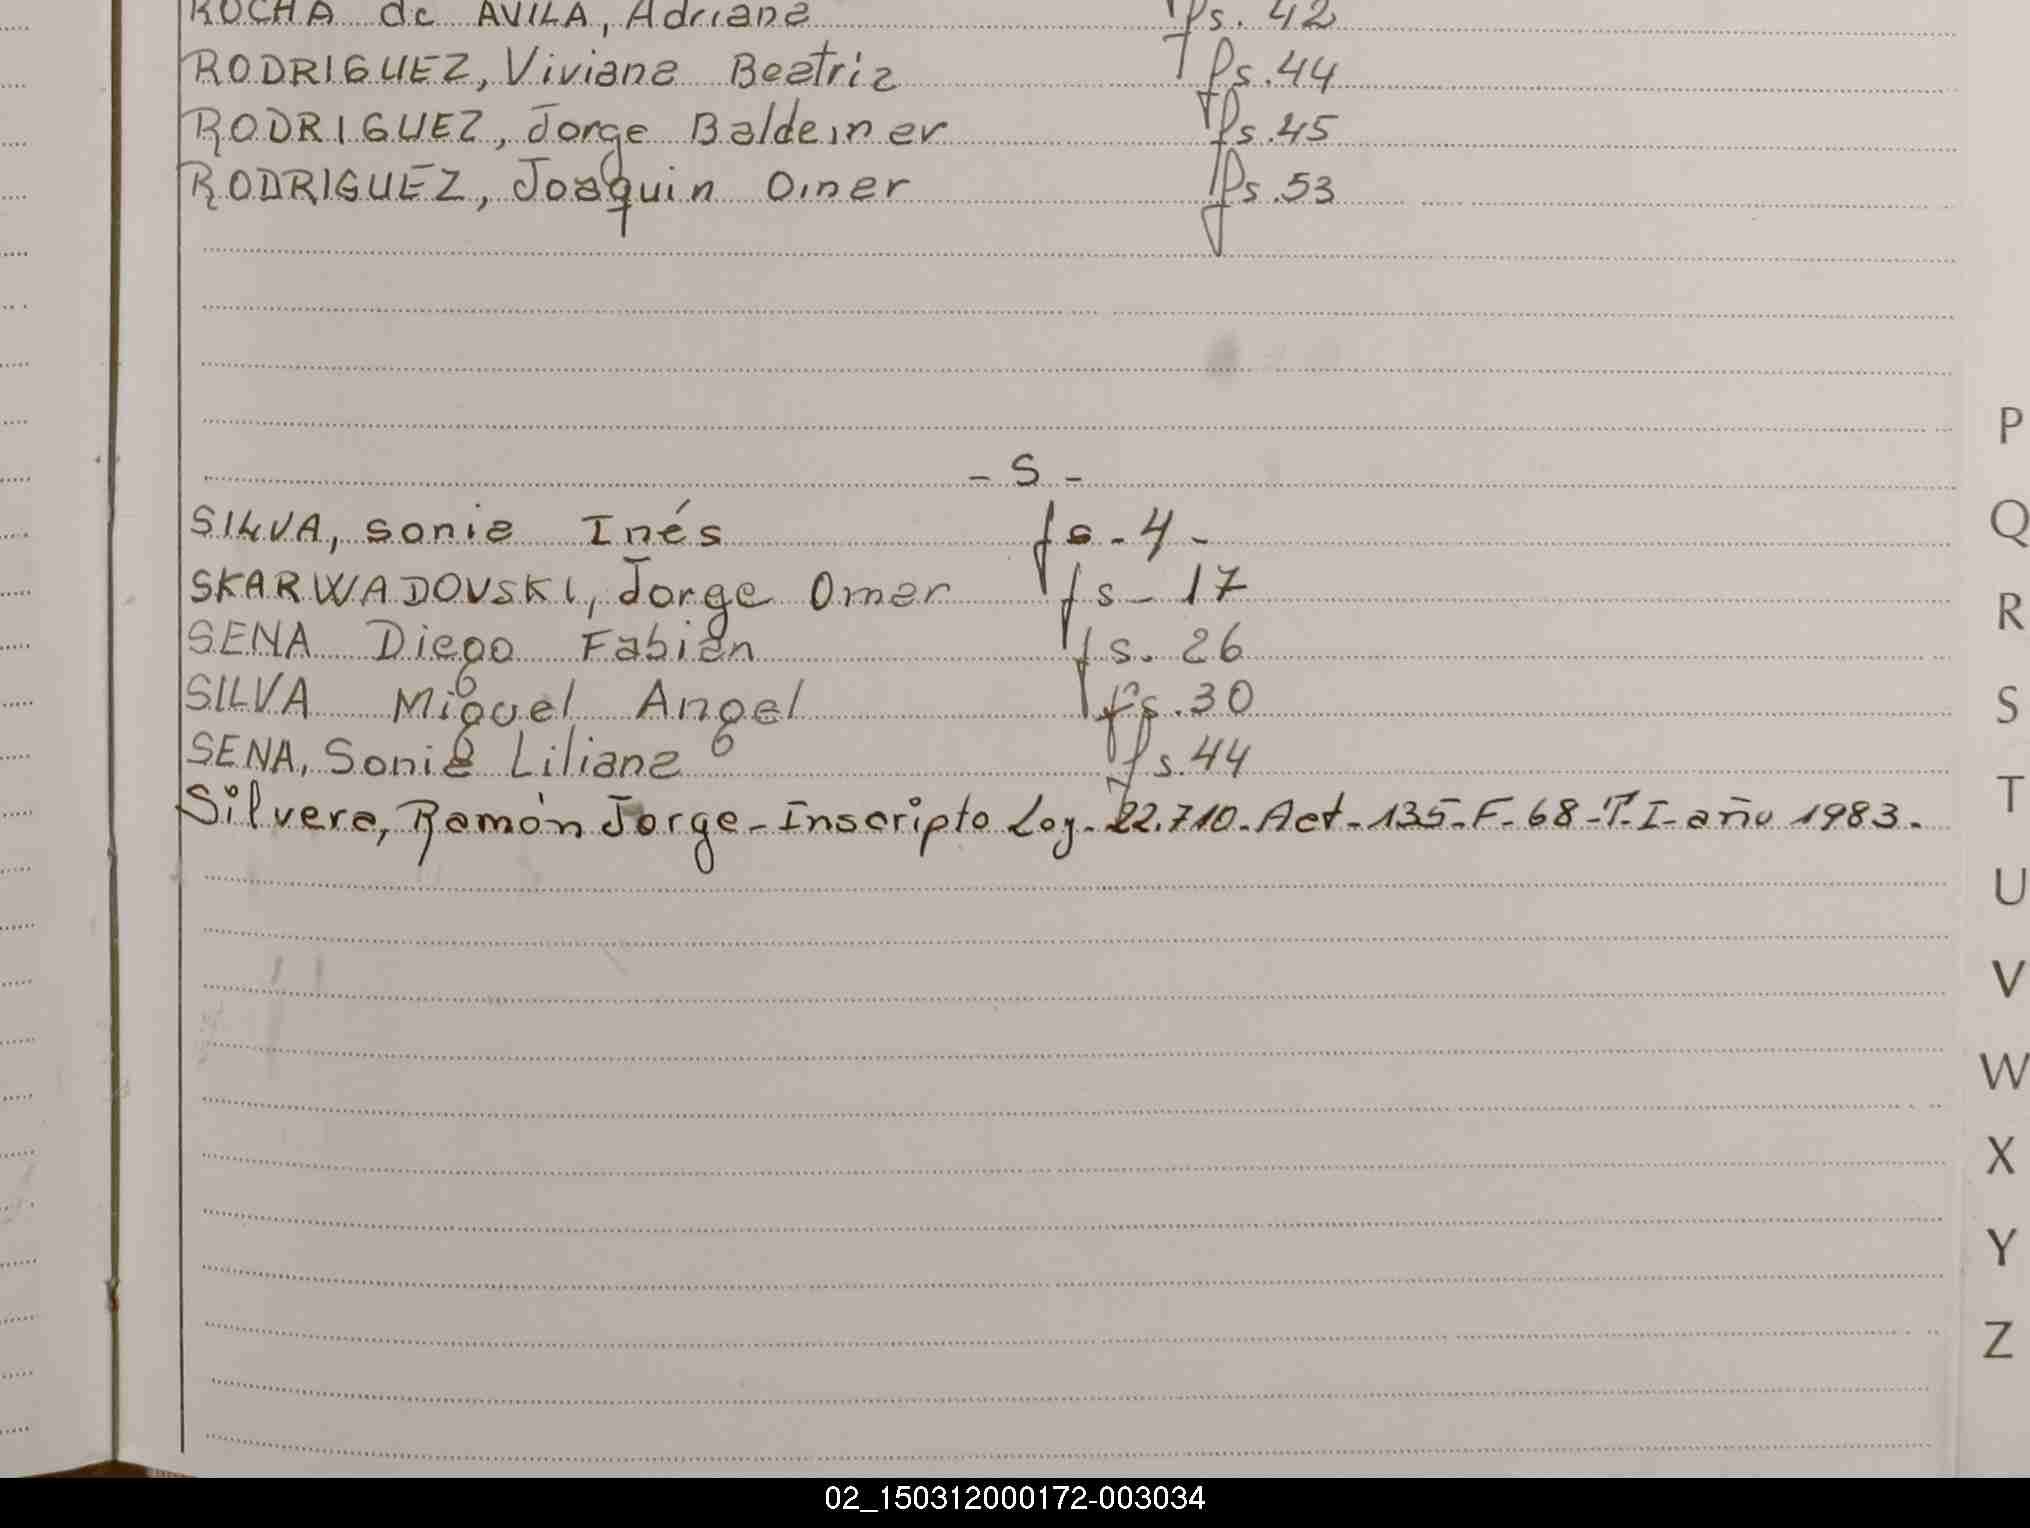 ROCHA de AVILA, Adriana fs. 42
RODRIGUEZ, Viviana Beatriz fs. 44
RODRIGUEZ, Jorge Baldemer fs. 45
RODRIGUEZ, Joaquin Omer fs. 53
- S -
SILVA, Sonia Inés fs - 4 -
SKARWADOVSKI, Jorge Omar fs - 17
SENA Diego Fabián fs. 26
SILVA Miguel Angel fs. 30
SENA, Sonia Liliana fs. 44
Silvera, Ramón Jorge - Inscripto Log. 22.710. Act - 135 - F - 68 - T. I - año 1983.
P
Q
R
S
T
U
V
W
X
Y
Z
02_150312000172-003034